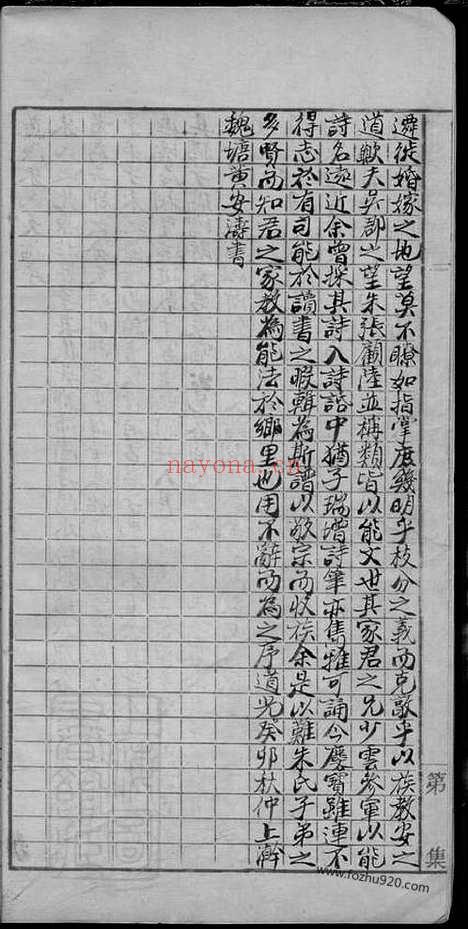 遷徙婚嫁之地望莫不瞭如指掌庶幾明乎枝分之義而克敬乎以族教安之
道歟夫吳郡之望朱張顧陸並稱類皆以能文世其家君之兄少雲參軍以能
詩名遠近余曾採其詩入詩話中猶子瑞增詩筆亦雋雅可誦今慶寶雖連不
得志於有司能於讀書之暇輯為斯譜以敬宗而收族余是以難朱氏子弟之
多賢而知君之家教為能法於鄉里也用不辭而為之序道光癸卯秋仲上澣
魏塘黃安濤書
第 集
nayona.cn
www.fozhu920.com